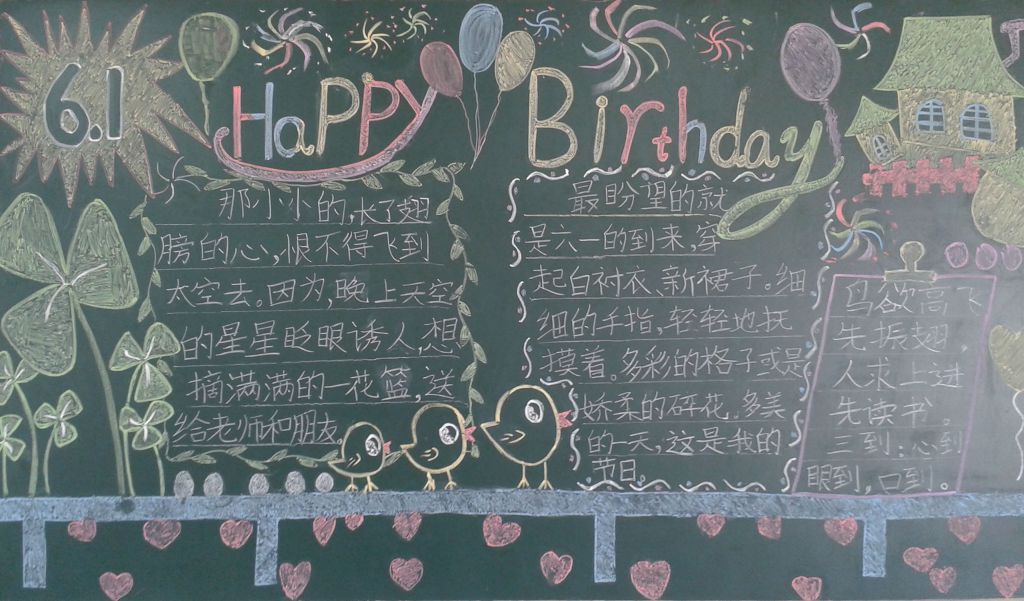 6.1
Happy Birthday
那小小的,长了翅
膀的心,恨不得飞到
太空去。因为,晚上天空
的星星眨眼诱人,想
摘满满的一花篮,送
给老师和朋友。
最盼望的就
是六一的到来,穿
起白衬衣、新裙子。细
细的手指,轻轻地抚
摸着。多彩的格子或是
娇柔的碎花。多美
的一天,这是我的
节日。
鸟欲高飞
先振翅,
人求上进
先读书。
三到:心到
眼到,口到。